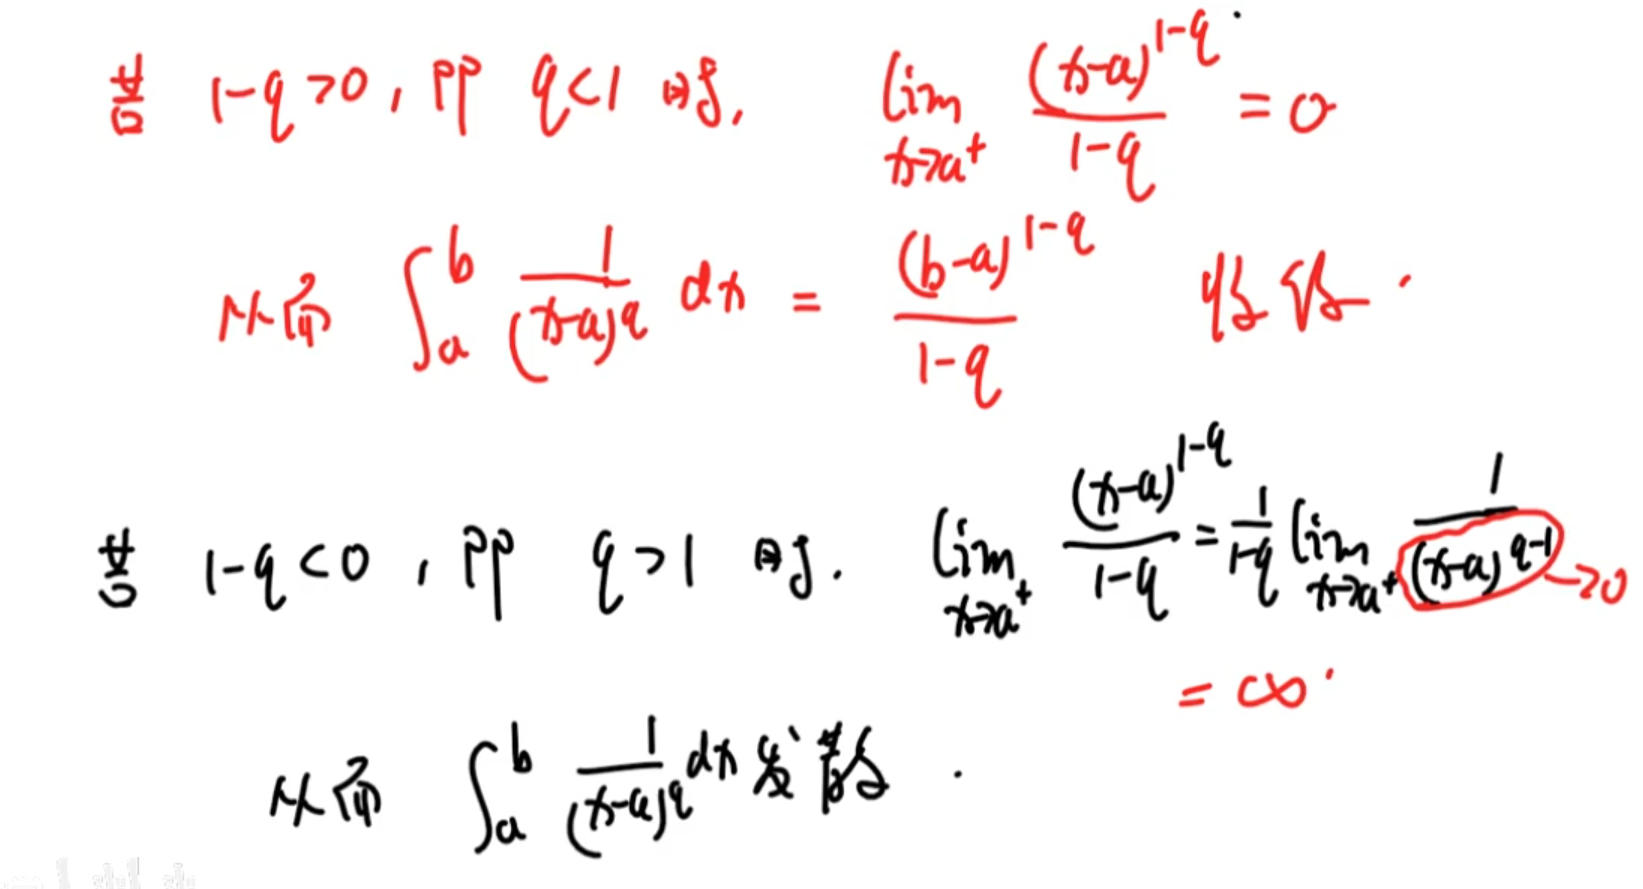 若 1-q>0, 即 q<1 时, lim_{x→a⁺} (x-a)^{1-q}/(1-q) = 0
从而 ∫_a^b 1/(x-a)^q dx = (b-a)^{1-q}/(1-q) 收敛.
若 1-q<0, 即 q>1 时. lim_{x→a⁺} (x-a)^{1-q}/(1-q) = 1/(1-q) lim_{x→a⁺} 1/(x-a)^{q-1} →0
= ∞.
从而 ∫_a^b 1/(x-a)^q dx 发散.